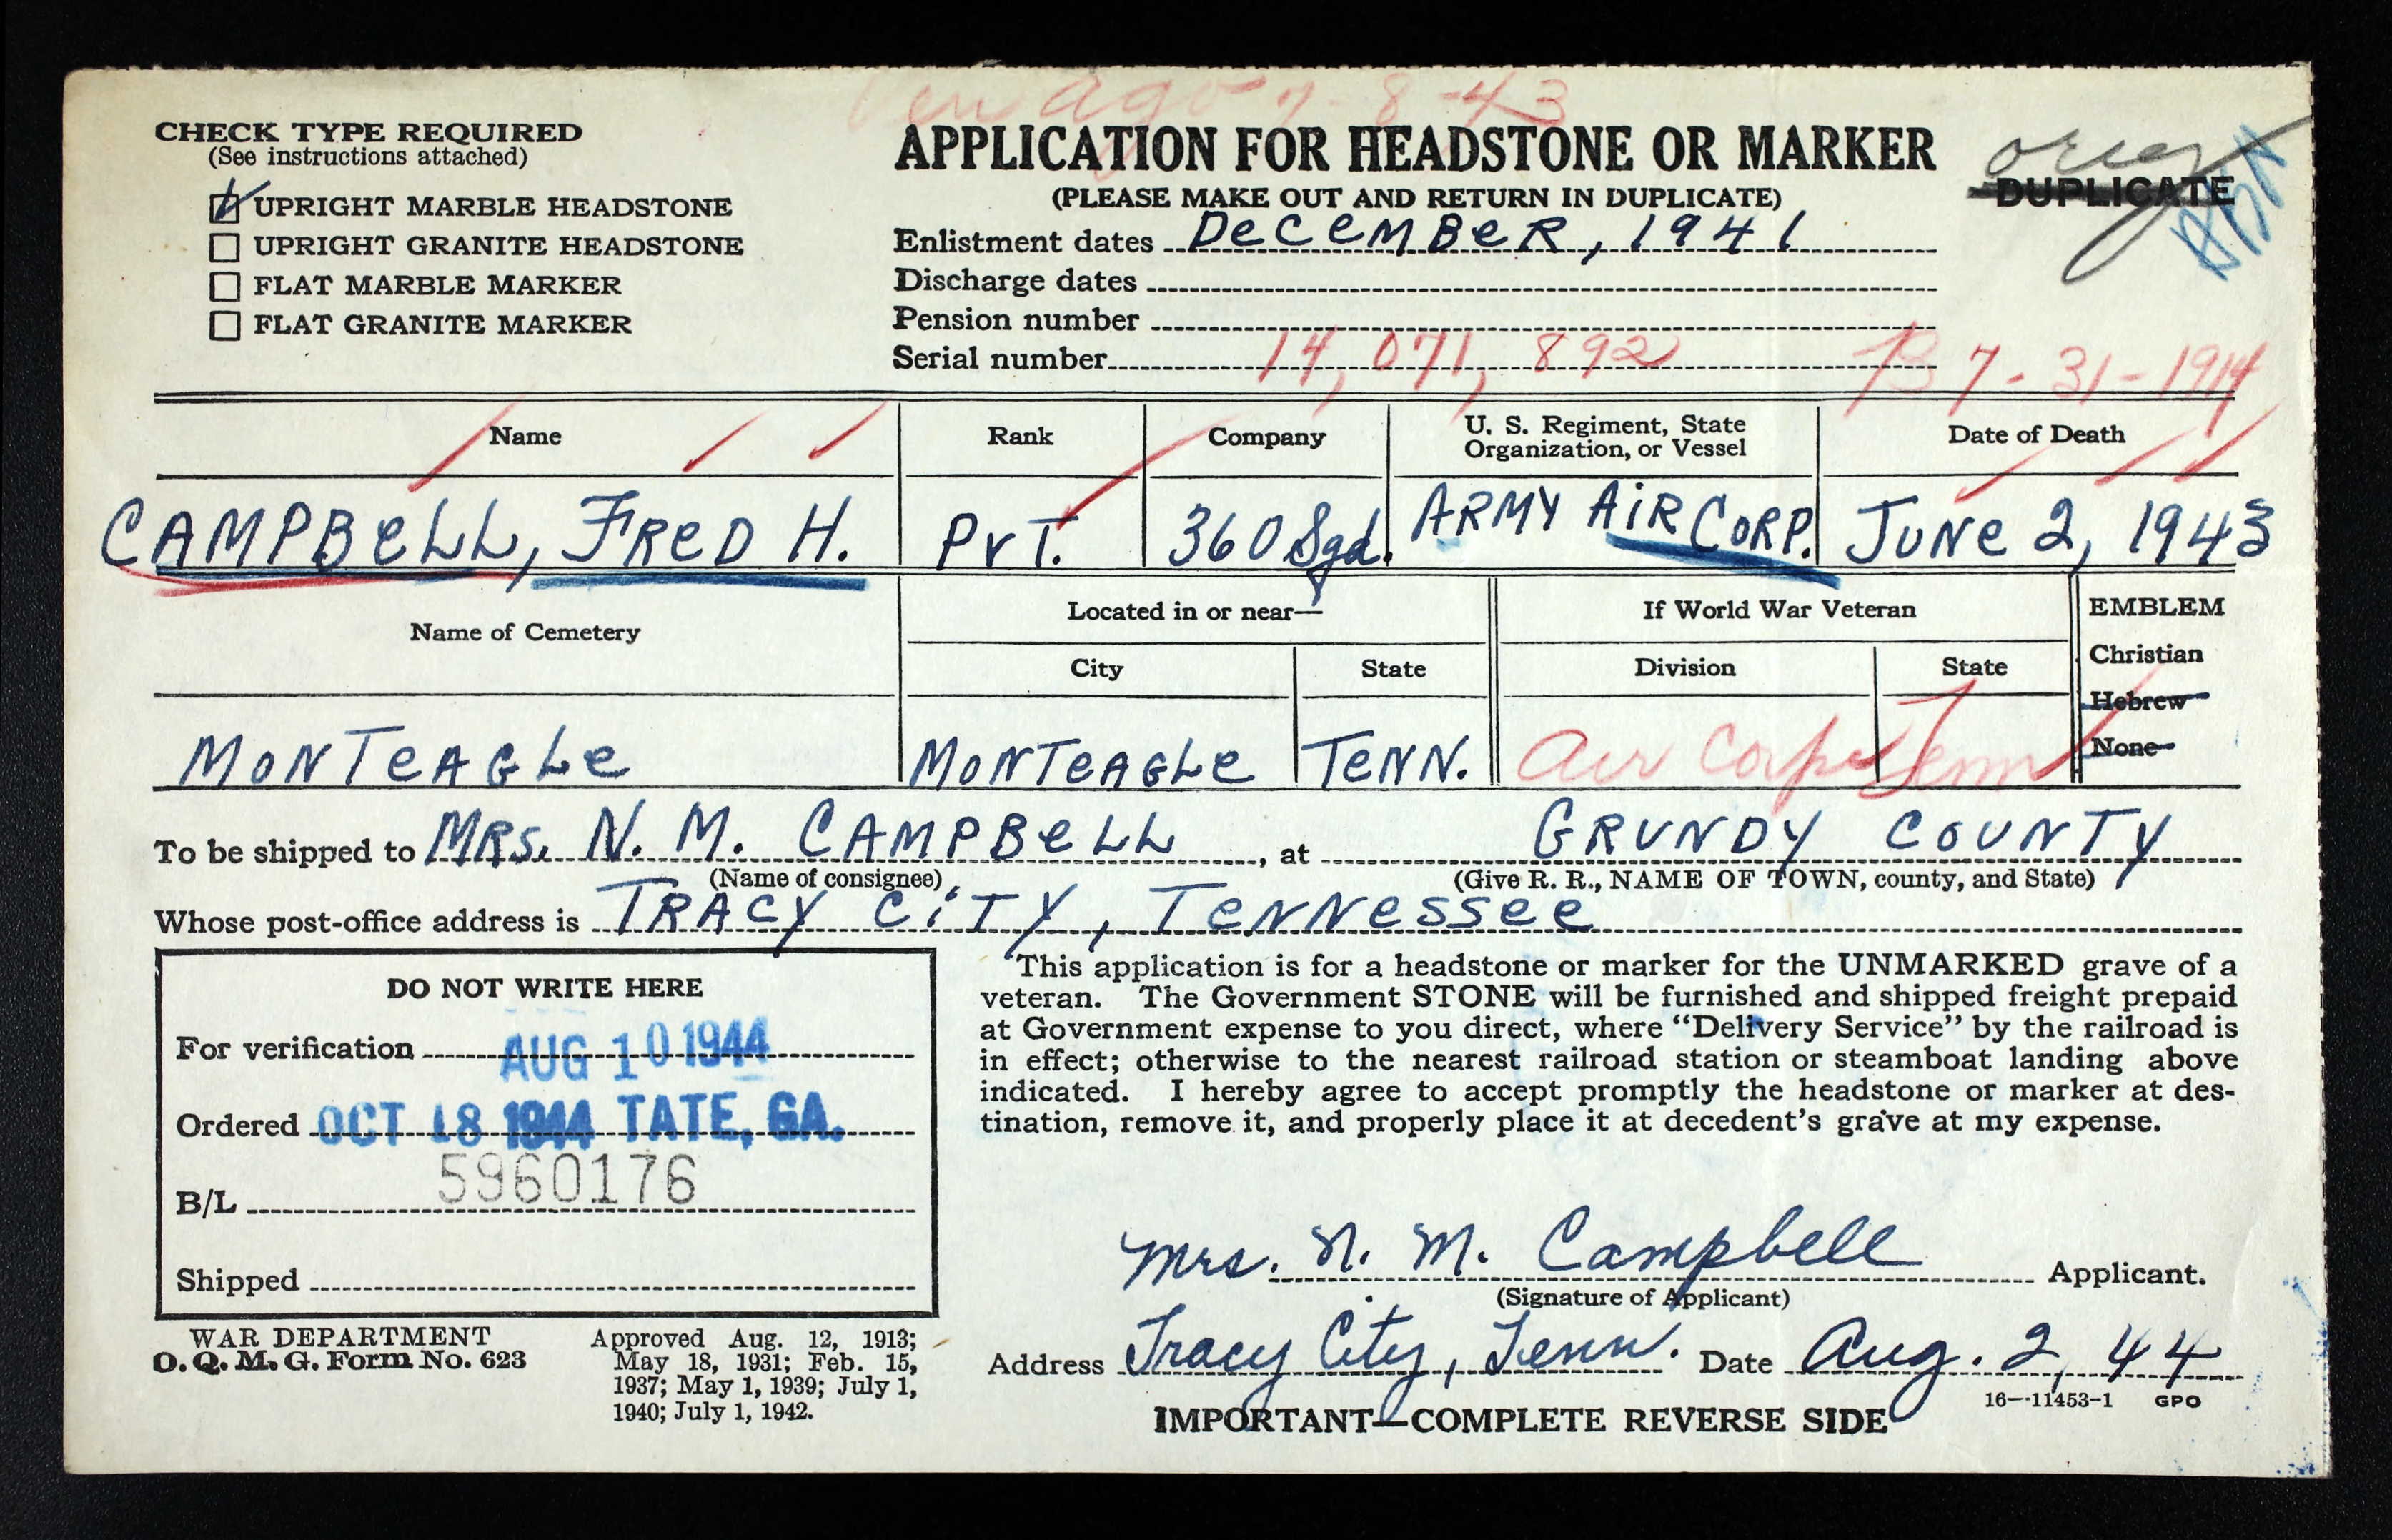 ago 7-8-43
CHECK TYPE REQUIRED
(See instructions attached)
UPRIGHT MARBLE HEADSTONE
UPRIGHT GRANITE HEADSTONE
FLAT MARBLE MARKER
FLAT GRANITE MARKER
APPLICATION FOR HEADSTONE OR MARKER
(PLEASE MAKE OUT AND RETURN IN DUPLICATE)
orig
DUPLICATE
Enlistment dates DeCeMBeR, 1941
Discharge dates
Pension number
Serial number 14,071,892
B 7-31-1914
Name Rank Company U. S. Regiment, State Organization, or Vessel Date of Death
CAMPBeLL, FReD H. PvT. 360 Sqd. ARMY AiR CORP. JUNe 2, 1943
Name of Cemetery Located in or near— If World War Veteran EMBLEM
City State Division State Christian
Hebrew
None
MONTeAGLe MONTeAGLe TeNN. Air Corps Tenn
To be shipped to MRS. N. M. CAMPBeLL, at GRUNDY COUNTY
(Name of consignee) (Give R. R., NAME OF TOWN, county, and State)
Whose post-office address is TRACY CiTY, TeNNessee
DO NOT WRITE HERE
For verification AUG 10 1944
Ordered OCT 18 1944 TATE, GA.
B/L 5960176
Shipped
This application is for a headstone or marker for the UNMARKED grave of a
veteran. The Government STONE will be furnished and shipped freight prepaid
at Government expense to you direct, where “Delivery Service” by the railroad is
in effect; otherwise to the nearest railroad station or steamboat landing above
indicated. I hereby agree to accept promptly the headstone or marker at des-
tination, remove it, and properly place it at decedent's grave at my expense.
Mrs. N. M. Campbell Applicant.
(Signature of Applicant)
Address Tracy City, Tenn. Date Aug. 2, 44
WAR DEPARTMENT
O. Q. M. G. Form No. 623
Approved Aug. 12, 1913;
May 18, 1931; Feb. 15,
1937; May 1, 1939; July 1,
1940; July 1, 1942.
16—11453-1 GPO
IMPORTANT—COMPLETE REVERSE SIDE